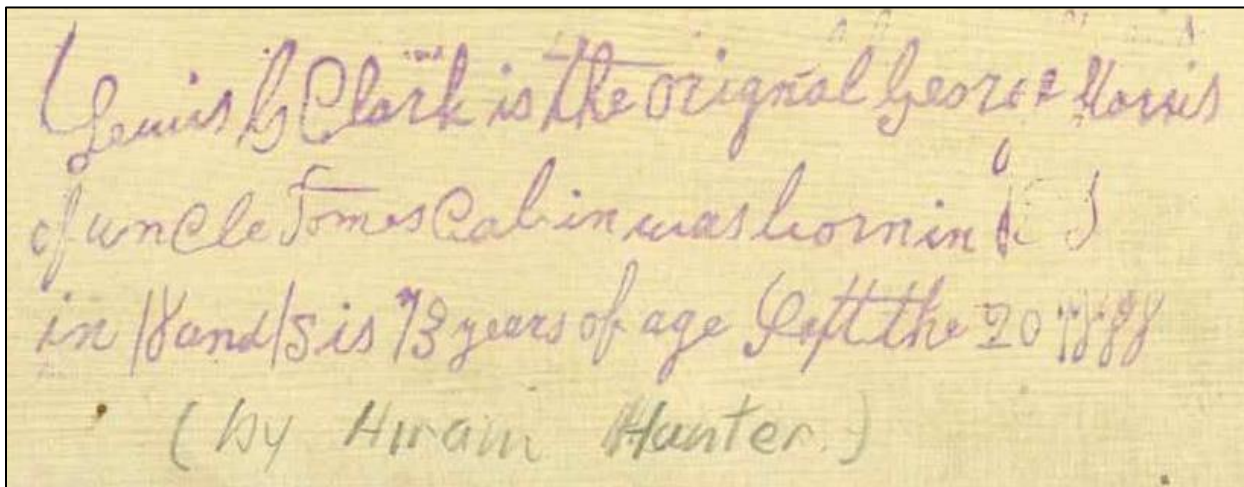 Lewis G Clark is the orignal George Harris
of uncle Tomes Cabin was born in
in 18 and 15 is 73 years of age Left the 20 1888
(by Hiram Hunter.)